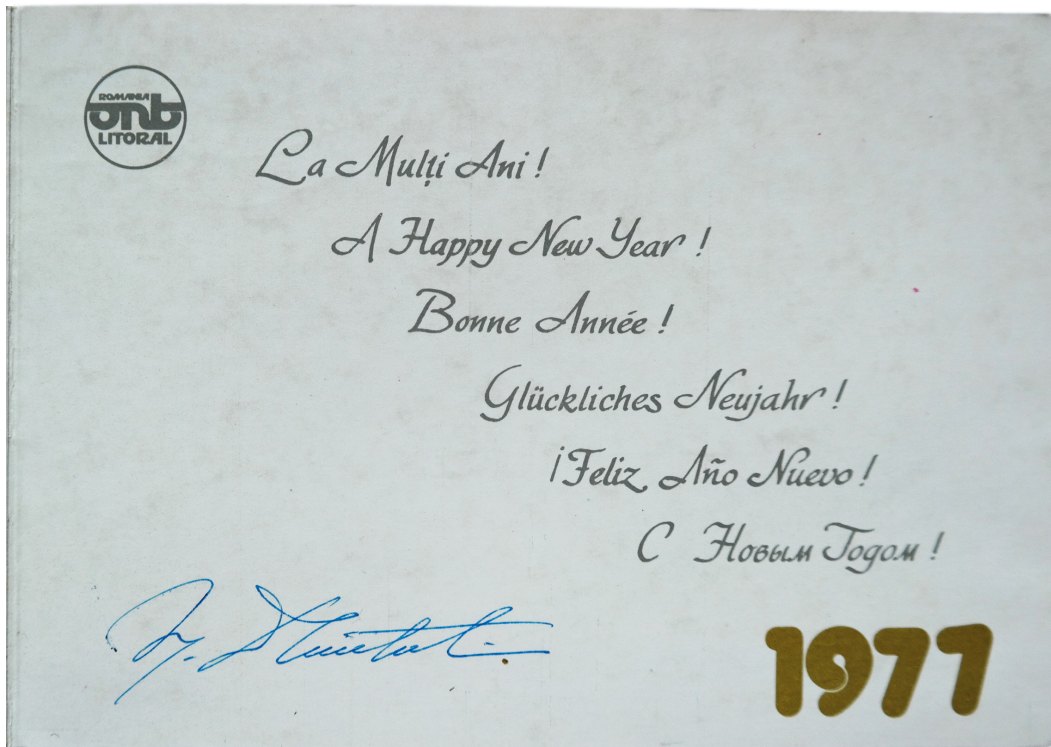 ROMANIA
ONT
LITORAL
La Mulți Ani !
A Happy New Year !
Bonne Année !
Glückliches Neujahr !
¡Feliz Año Nuevo !
С Новым Годом !
1977